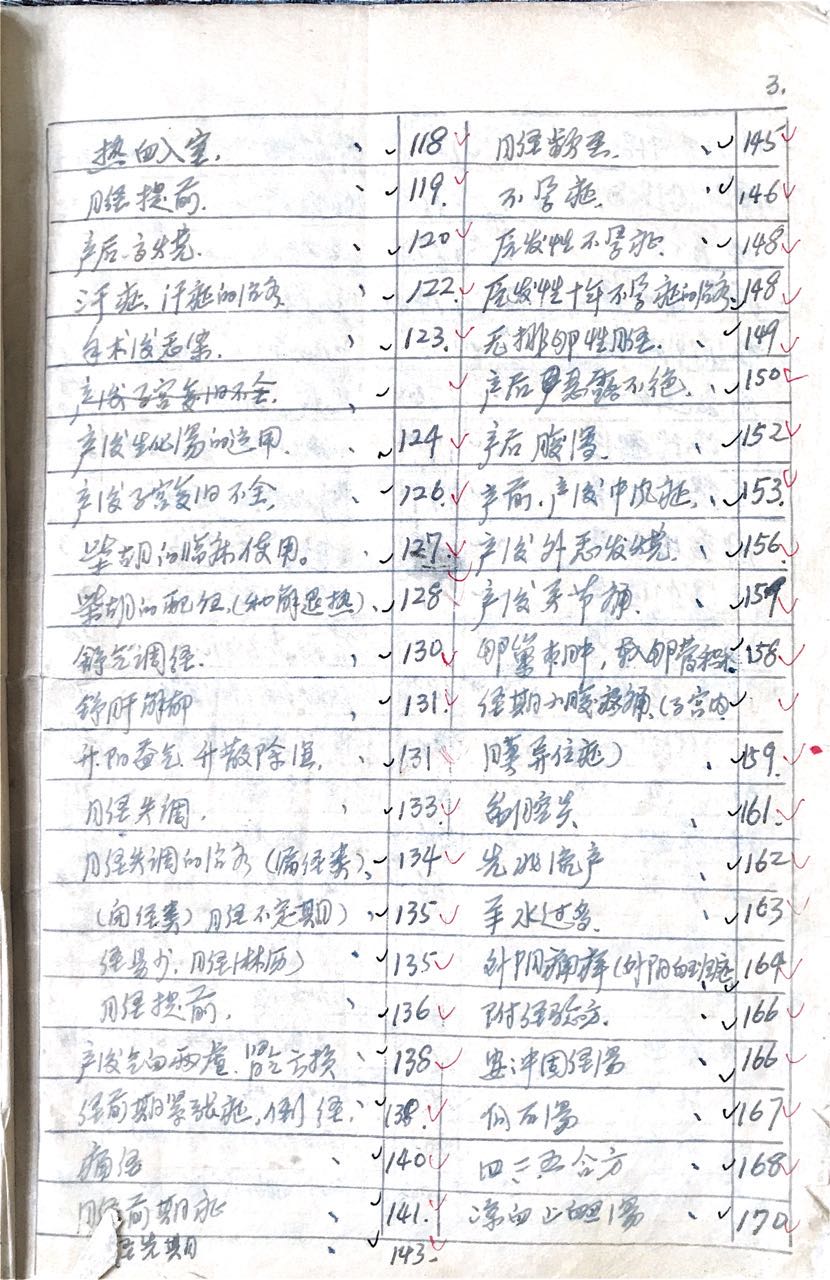 3.
热血入室. 118
月经提前. 119.
产后高烧. 120
汗症、汗症的治疗. 122.
手术后恶寒. 123.
产后子宫复旧不全.
产后生化汤的运用. 124
产后子宫复旧不全. 126.
柴胡的临床使用。 127.
柴胡的配伍.(和解退热). 128
舒气调经. 130
舒肝解郁 131
升阳益气 升散除湿. 131
月经失调. 133
月经失调的治疗(漏经类). 134
(闭经类)月经不定期) 135
经量少.月经淋历) 135
月经提前. 136
产后气血两虚.肾气亏损 138
经前期紧张症,倒经. 138.
痛经 140
月经前期症 141.
经先期 143.
月经数至. 145
不孕症. 146
原发性不孕症. 148
原发性十年不孕症的治疗. 148
无排卵性月经. 149
产后恶露不绝. 150
产后腹泻. 152
产前.产后中风症. 153
产后外感发烧. 156
产后关节痛. 159
卵巢囊肿,输卵管积水. 158
经期小腹疼痛.(子宫内
膜异位症) 159.
盆腔炎 161.
先兆流产 162
羊水过多. 163
外阴瘙痒(外阴白斑症 164
附经验方. 166
安冲固经汤 166
四三五合方 168
凉血止血汤 170
167